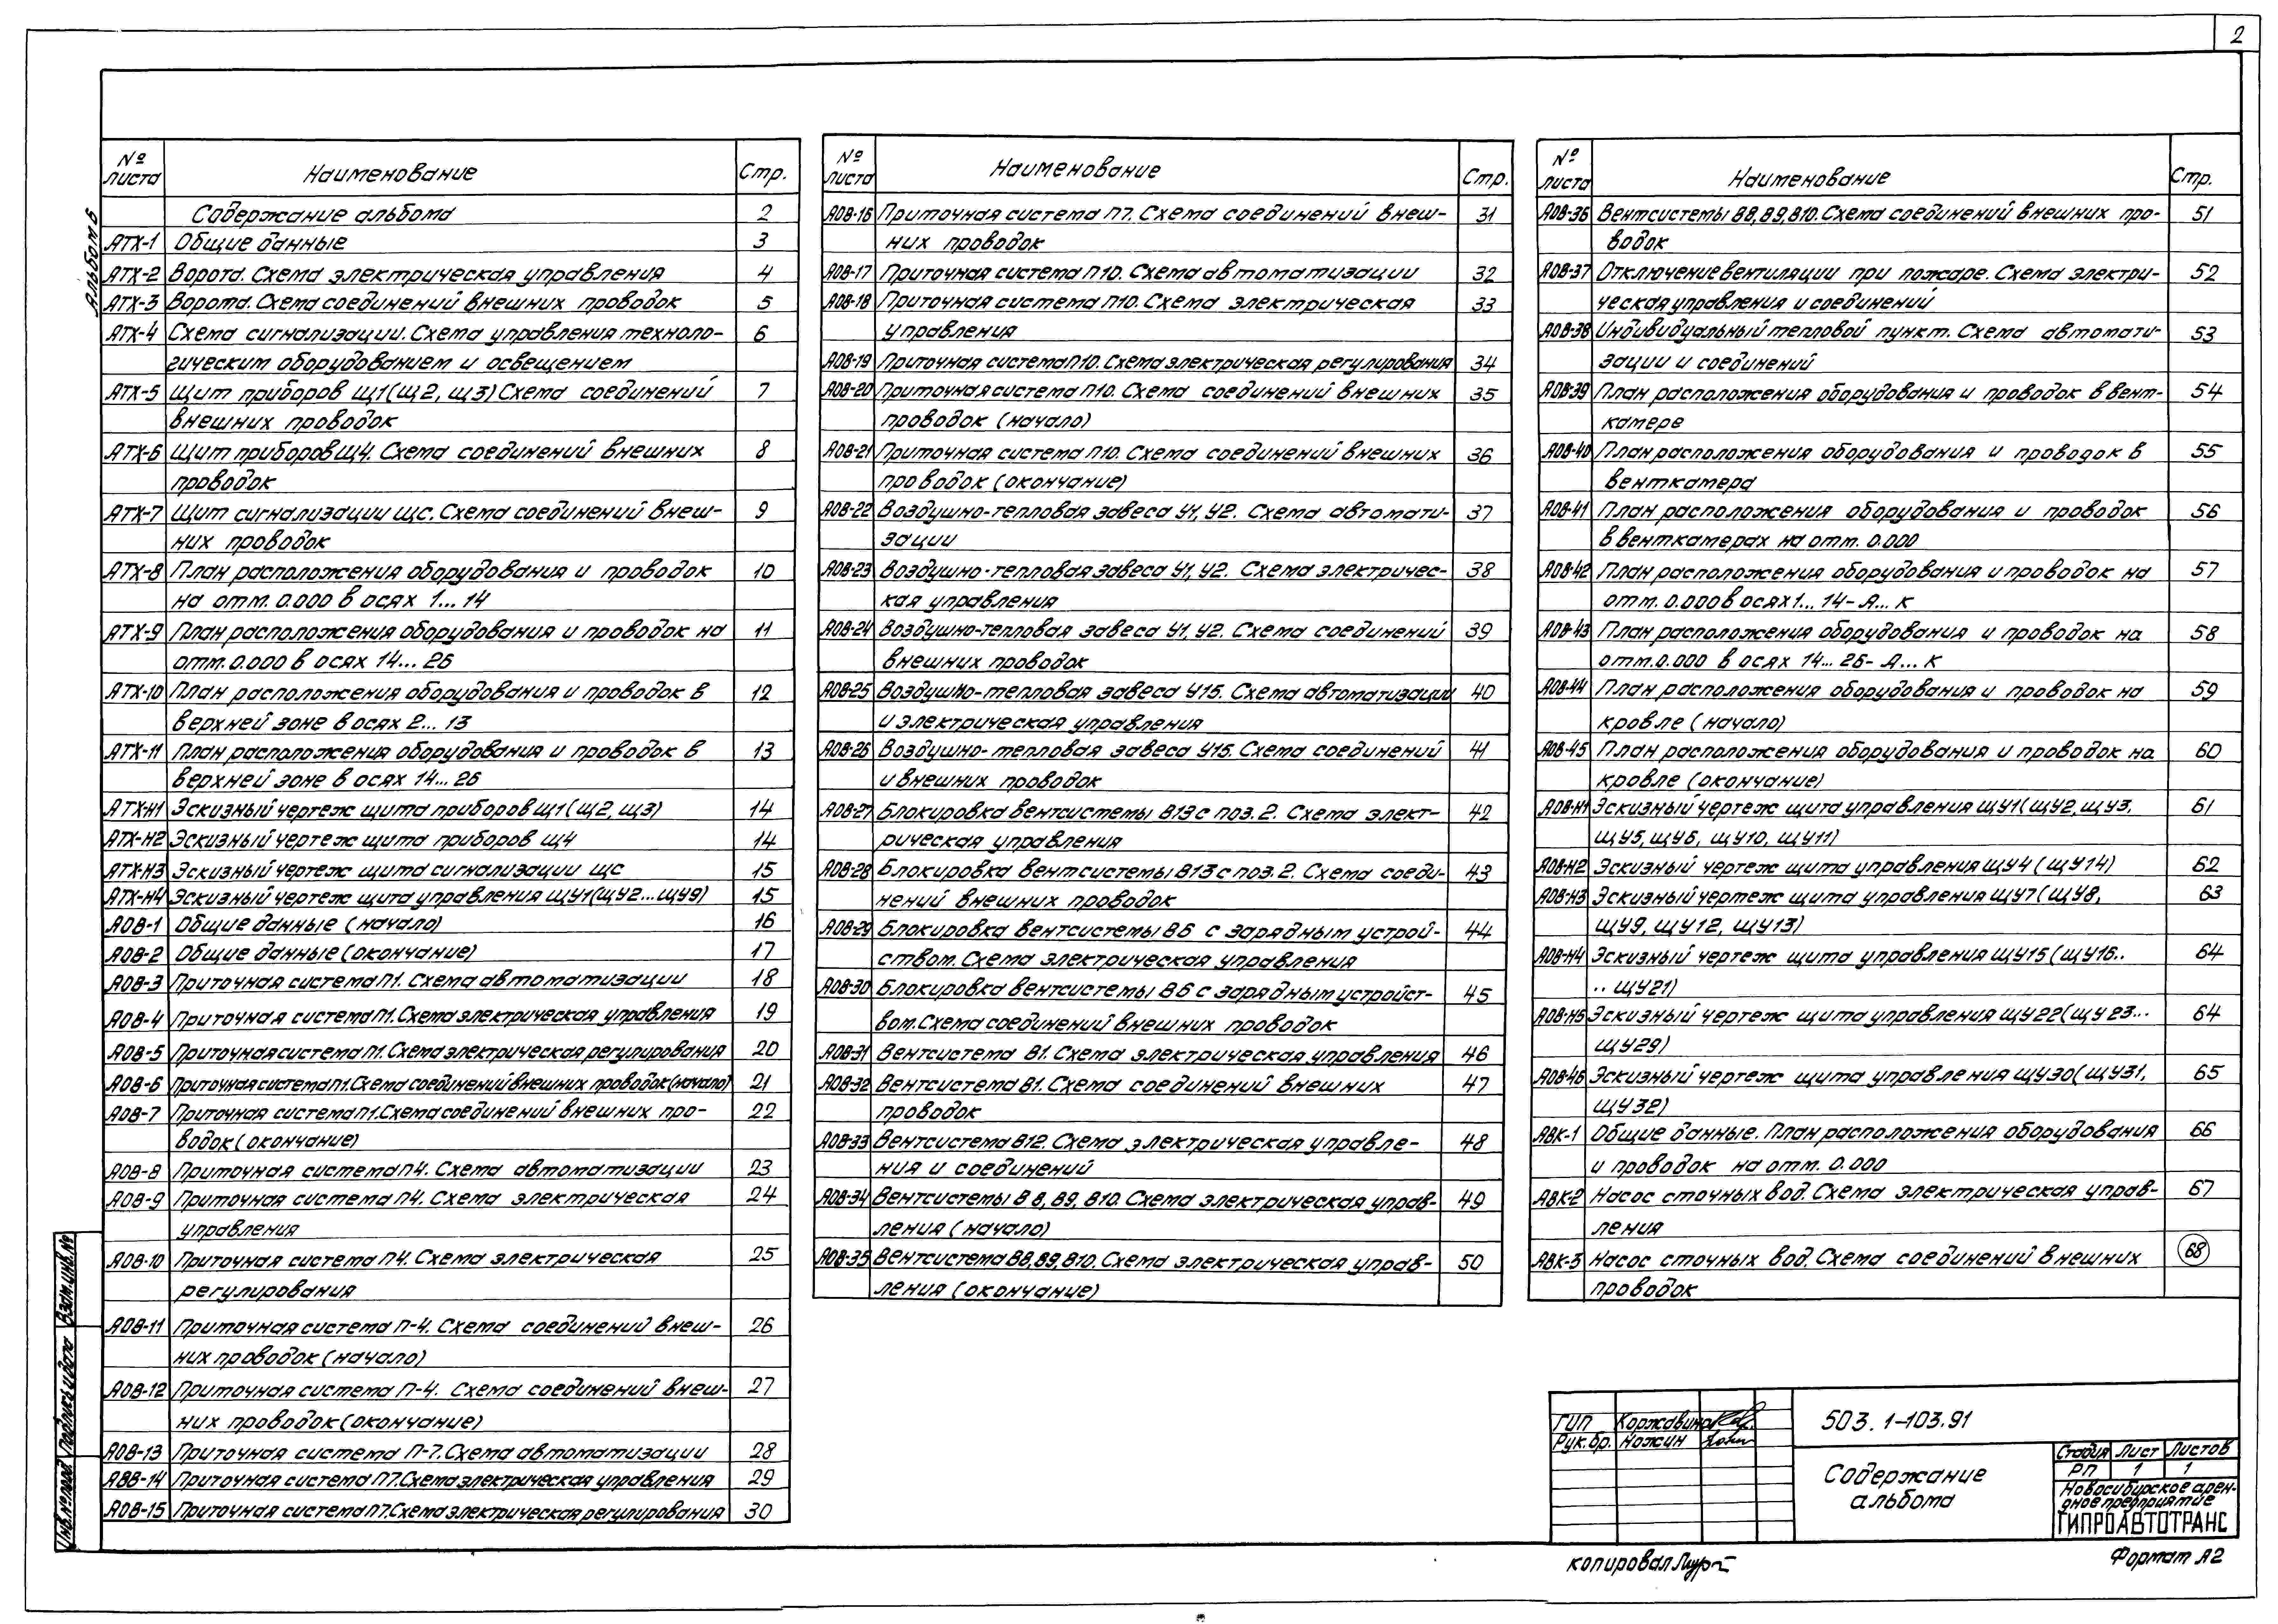 2
Альбом 6
№ листа Наименование Стр.
Содержание альбома 2
АТХ-1 Общие данные 3
АТХ-2 Ворота. Схема электрическая управления 4
АТХ-3 Ворота. Схема соединений внешних проводок 5
АТХ-4 Схема сигнализации. Схема управления техноло- 6
гическим оборудованием и освещением
АТХ-5 Щит приборов Щ1(Щ2, Щ3) Схема соединений 7
внешних проводок
АТХ-6 Щит приборов Щ4. Схема соединений внешних 8
проводок
АТХ-7 Щит сигнализации ЩС. Схема соединений внеш- 9
них проводок
АТХ-8 План расположения оборудования и проводок 10
на отм. 0.000 в осях 1...14
АТХ-9 План расположения оборудования и проводок на 11
отм. 0.000 в осях 14...26
АТХ-10 План расположения оборудования и проводок в 12
верхней зоне в осях 2...13
АТХ-11 План расположения оборудования и проводок в 13
верхней зоне в осях 14...26
АТХ-Н1 Эскизный чертеж щита приборов Щ1(Щ2, Щ3) 14
АТХ-Н2 Эскизный чертеж щита приборов Щ4 14
АТХ-Н3 Эскизный чертеж щита сигнализации ЩС 15
АТХ-Н4 Эскизный чертеж щита управления ЩУ1(ЩУ2...ЩУ9) 15
АОВ-1 Общие данные (начало) 16
АОВ-2 Общие данные (окончание) 17
АОВ-3 Приточная система П1. Схема автоматизации 18
АОВ-4 Приточная система П1. Схема электрическая управления 19
АОВ-5 Приточная система П1. Схема электрическая регулирования 20
АОВ-6 Приточная система П1. Схема соединений внешних проводок (начало) 21
АОВ-7 Приточная система П1. Схема соединений внешних про- 22
водок (окончание)
АОВ-8 Приточная система П4. Схема автоматизации 23
АОВ-9 Приточная система П4. Схема электрическая 24
управления
АОВ-10 Приточная система П4. Схема электрическая 25
регулирования
АОВ-11 Приточная система П-4. Схема соединений внеш- 26
них проводок (начало)
АОВ-12 Приточная система П-4. Схема соединений внеш- 27
них проводок (окончание)
АОВ-13 Приточная система П-7. Схема автоматизации 28
АВВ-14 Приточная система П7. Схема электрическая управления 29
АОВ-15 Приточная система П7. Схема электрическая регулирования 30
№ листа Наименование Стр.
АОВ-16 Приточная система П7. Схема соединений внеш- 31
них проводок
АОВ-17 Приточная система П10. Схема автоматизации 32
АОВ-18 Приточная система П10. Схема электрическая 33
управления
АОВ-19 Приточная система П10. Схема электрическая регулирования 34
АОВ-20 Приточная система П10. Схема соединений внешних 35
проводок (начало)
АОВ-21 Приточная система П10. Схема соединений внешних 36
проводок (окончание)
АОВ-22 Воздушно-тепловая завеса У1, У2. Схема автомати- 37
зации
АОВ-23 Воздушно-тепловая завеса У1, У2. Схема электричес- 38
кая управления
АОВ-24 Воздушно-тепловая завеса У1, У2. Схема соединений 39
внешних проводок
АОВ-25 Воздушно-тепловая завеса У15. Схема автоматизации 40
и электрическая управления
АОВ-26 Воздушно-тепловая завеса У15. Схема соединений 41
и внешних проводок
АОВ-27 Блокировка вентсистемы В13 с поз. 2. Схема элект- 42
рическая управления
АОВ-28 Блокировка вентсистемы В13 с поз. 2. Схема соеди- 43
нений внешних проводок
АОВ-29 Блокировка вентсистемы В6 с зарядным устрой- 44
ством. Схема электрическая управления
АОВ-30 Блокировка вентсистемы В6 с зарядным устройст- 45
вом. Схема соединений внешних проводок
АОВ-31 Вентсистема В1. Схема электрическая управления 46
АОВ-32 Вентсистема В1. Схема соединений внешних 47
проводок
АОВ-33 Вентсистема В12. Схема электрическая управле- 48
ния и соединений
АОВ-34 Вентсистемы В8, В9, В10. Схема электрическая управ- 49
ления (начало)
АОВ-35 Вентсистема В8, В9, В10. Схема электрическая управ- 50
ления (окончание)
№ листа Наименование Стр.
АОВ-36 Вентсистемы В8, В9, В10. Схема соединений внешних про- 51
водок
АОВ-37 Отключение вентиляции при пожаре. Схема электри- 52
ческая управления и соединений
АОВ-38 Индивидуальный тепловой пункт. Схема автомати- 53
зации и соединений
АОВ-39 План расположения оборудования и проводок в вент- 54
камере
АОВ-40 План расположения оборудования и проводок в 55
венткамера
АОВ-41 План расположения оборудования и проводок 56
в венткамерах на отм. 0.000
АОВ-42 План расположения оборудования и проводок на 57
отм. 0.000 в осях 1...14-А...К
АОВ-43 План расположения оборудования и проводок на 58
отм. 0.000 в осях 14...26-А...К
АОВ-44 План расположения оборудования и проводок на 59
кровле (начало)
АОВ-45 План расположения оборудования и проводок на 60
кровле (окончание)
АОВ-Н1 Эскизный чертеж щита управления ЩУ1(ЩУ2, ЩУ3, 61
ЩУ5, ЩУ6, ЩУ10, ЩУ11)
АОВ-Н2 Эскизный чертеж щита управления ЩУ4 (ЩУ14) 62
АОВ-Н3 Эскизный чертеж щита управления ЩУ7(ЩУ8, 63
ЩУ9, ЩУ12, ЩУ13)
АОВ-Н4 Эскизный чертеж щита управления ЩУ15(ЩУ16.. 64
.. ЩУ21)
АОВ-Н5 Эскизный чертеж щита управления ЩУ22(ЩУ23... 64
ЩУ29)
АОВ-Н6 Эскизный чертеж щита управления ЩУ30(ЩУ31, 65
ЩУ32)
АВК-1 Общие данные. План расположения оборудования 66
и проводок на отм. 0.000
АВК-2 Насос сточных вод. Схема электрическая управ- 67
ления
АВК-3 Насос сточных вод. Схема соединений внешних 68
проводок
Взам.инв.№
Подпись и дата
Инв.№ подл.
ГИП Коржавина
Рук.бр. Ножин
503.1-103.91
Содержание
альбома
Стадия Лист Листов
РП 1 1
Новосибирское арен-
дное предприятие
ГИПРОАВТОТРАНС
копировал
Формат А2